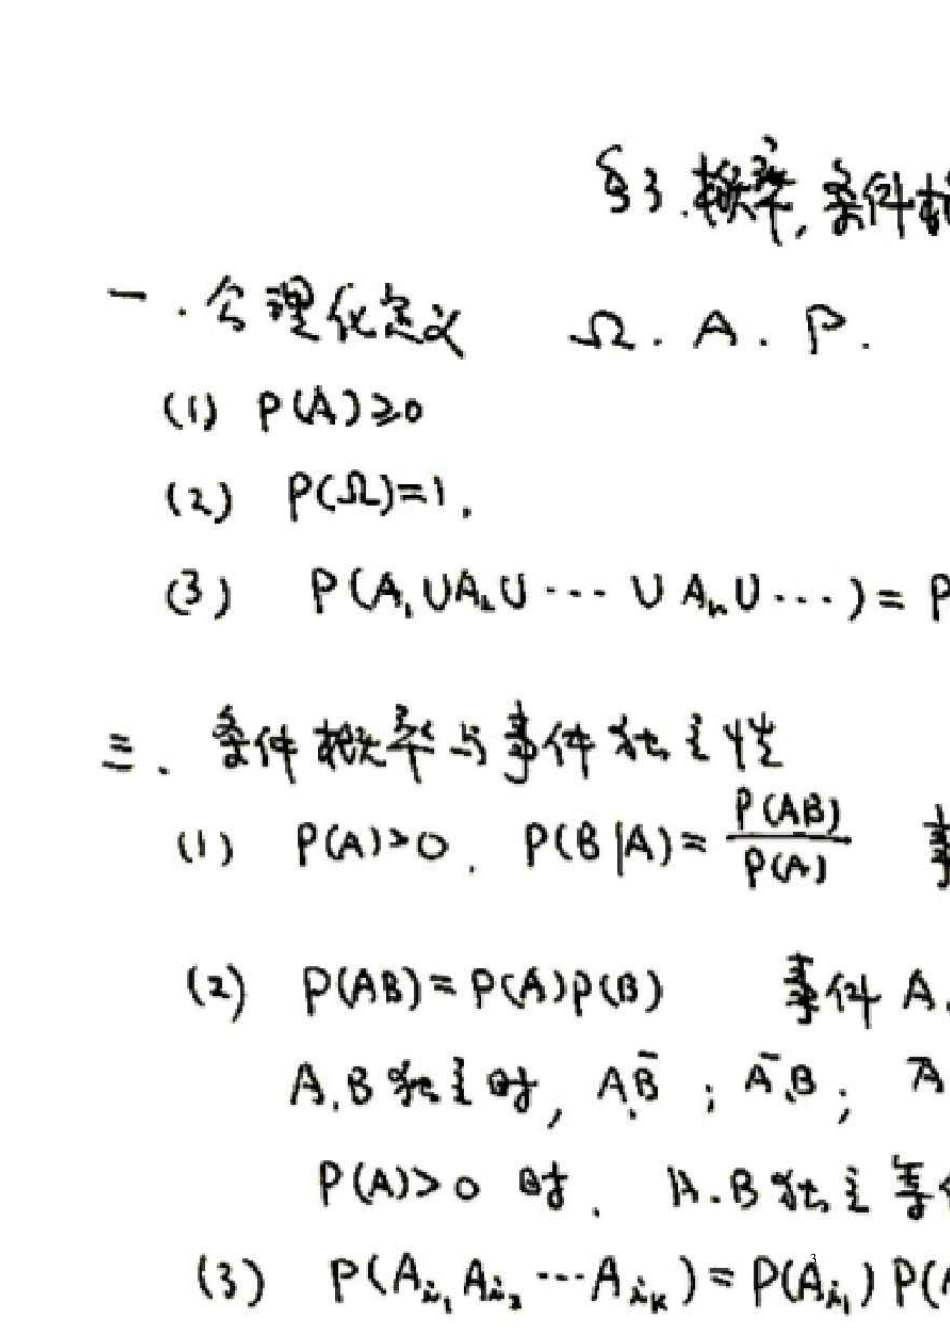 §3.概率,条件
一.公理化定义 Ω.A.P.
(1) P(A)≥0
(2) P(Ω)=1,
(3) P(A₁∪A₂∪···∪Aₙ∪···)=P
三、条件概率与事件独立性
(1) P(A)>0. P(B|A)=P(AB)/P(A) 事
(2) P(AB)=P(A)P(B) 事件A.
A.B独立时, A.B̄; Ā.B; Ā
P(A)>0时. A.B独立等
(3) P(Aᵢ₁Aᵢ₂···Aᵢₖ)=P(Aᵢ₁)P(
3